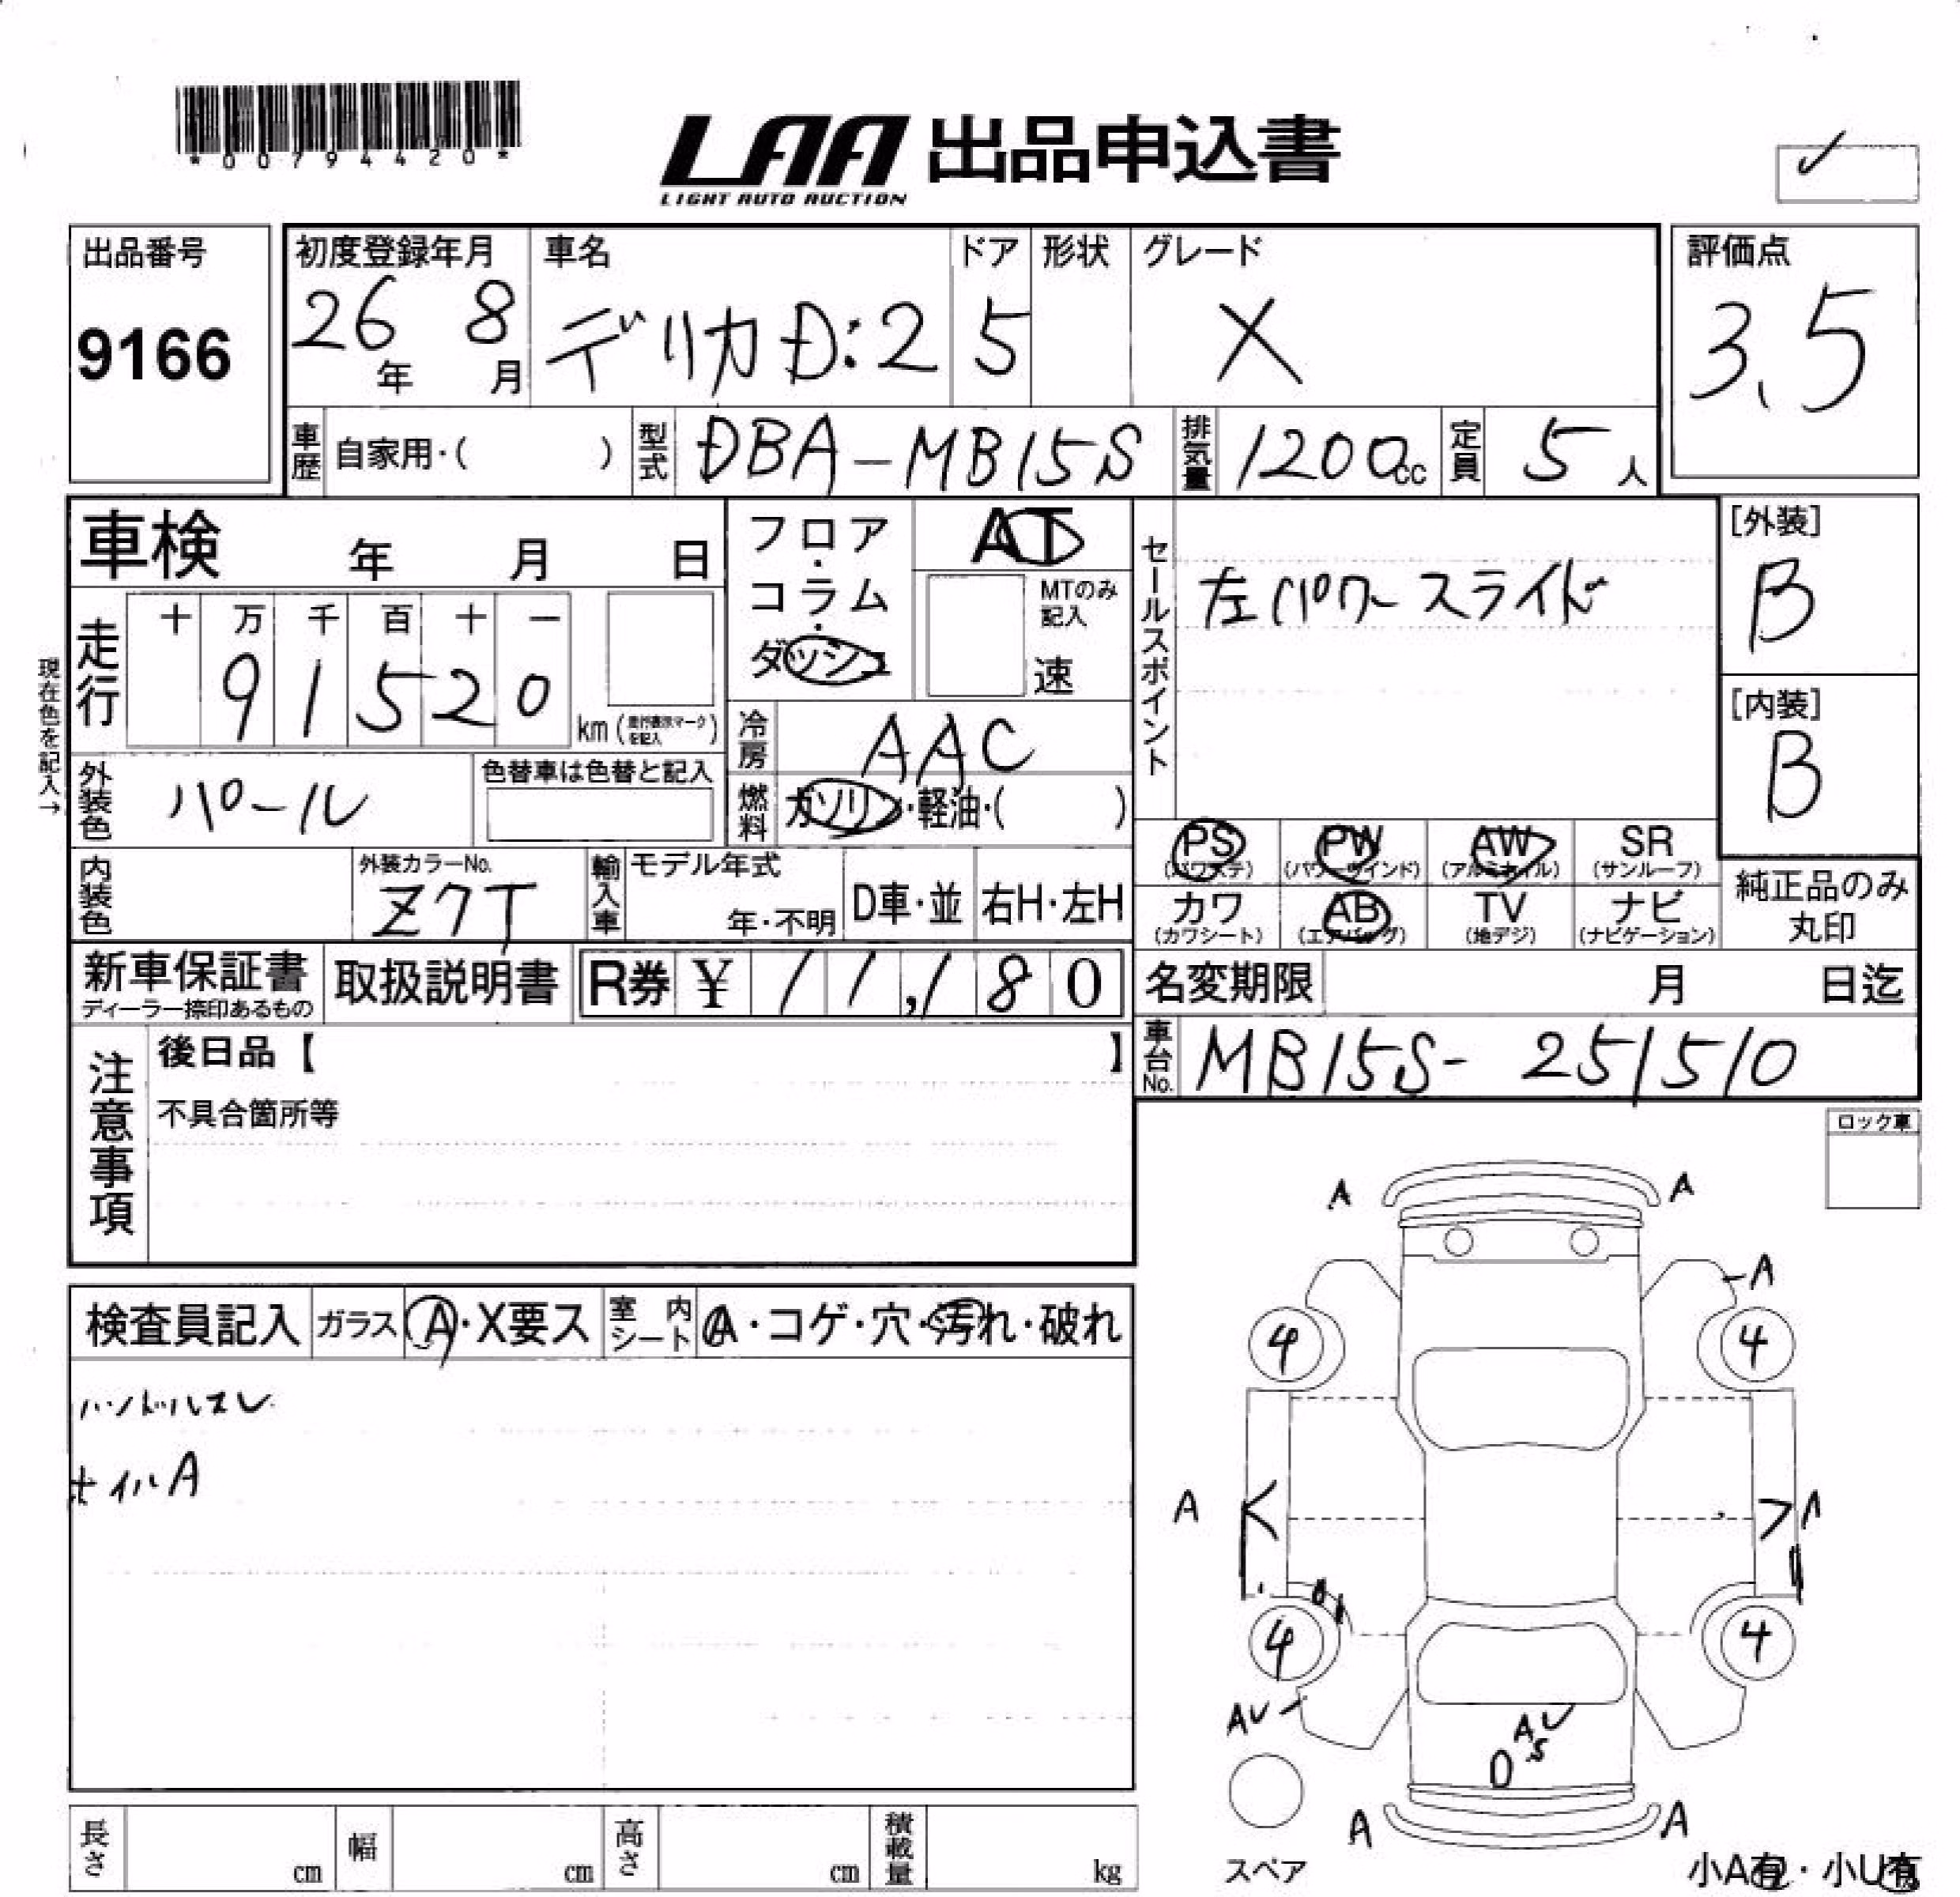 *00794420*
LAA 出品申込書
LIGHT AUTO AUCTION
出品番号
9166
初度登録年月
26年 8月
車名
デリカD:2
ドア
5
形状
グレード
X
評価点
3.5
車歴 自家用・( )
型式 DBA-MB15S
排気量 1200cc
定員 5人
車検 年 月 日
走行
十 万 千 百 十 一
9 1 5 2 0
km (走行表示マークを記入)
現在色を記入→
外装色 パール
色替車は色替と記入
フロア・コラム・ダッシュ
AT
MTのみ記入
速
冷房 AAC
燃料 ガソリン・軽油・( )
セールスポイント
左パワースライド
[外装]
B
[内装]
B
PS (パワステ) PW (パワーウインド) AW (アルミホイル) SR (サンルーフ)
カワ (カワシート) AB (エアバッグ) TV (地デジ) ナビ (ナビゲーション)
純正品のみ丸印
内装色
外装カラーNo.
Z7T
輸入車
モデル年式
年・不明
D車・並
右H・左H
新車保証書
ディーラー捺印あるもの
取扱説明書
R券 ¥ 11,180
名変期限 月 日迄
車台No. MB15S- 251510
注意事項
後日品【 】
不具合箇所等
ロック車
検査員記入 ガラス A・X要ス 室内シート A・コゲ・穴・汚れ・破れ
ハンドルスレ
ホイルA
A A
A
4 4
A
4 4
AU
AU
S
A A
スペア
小A有・小U有
長さ cm 幅 cm 高さ cm 積載量 kg